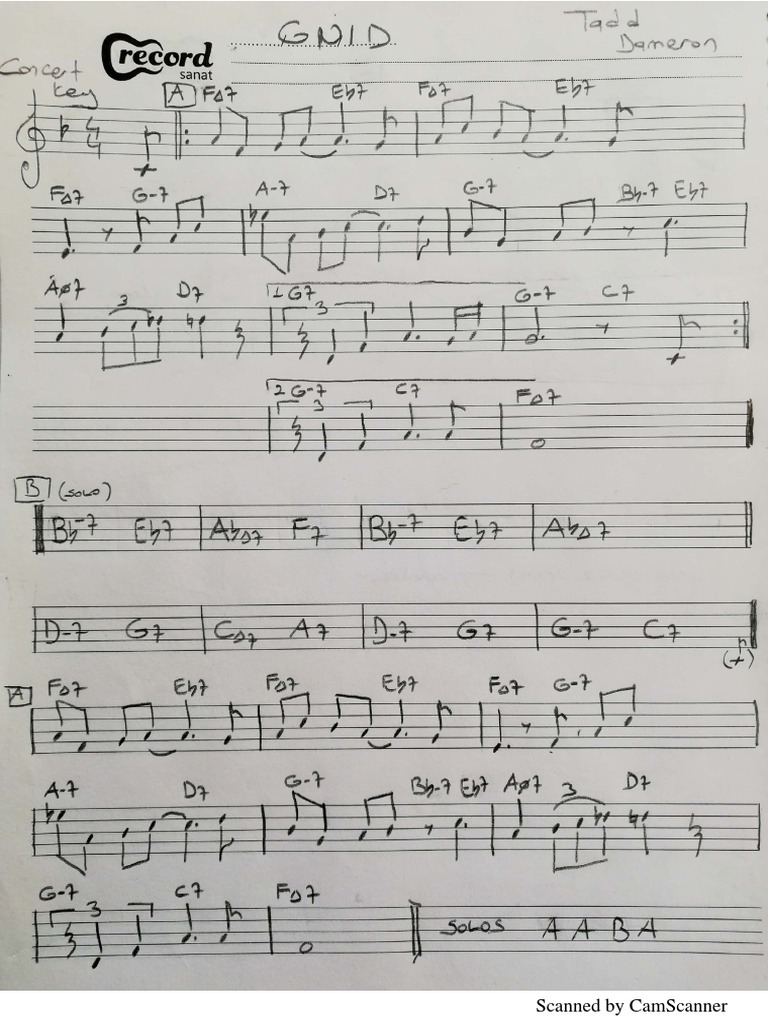 GNID
Tadd
Dameron
record
sanat
Concert
Key
A FΔ7 Eb7 FΔ7 Eb7
4
4
FΔ7 G-7 A-7 D7 G-7 Bb-7 Eb7
AØ7 3 D7 1 G7 3 G-7 C7
2 G-7 3 C7 FΔ7
B (SOLO)
Bb-7 Eb7 AbΔ7 F7 Bb-7 Eb7 AbΔ7
D-7 G7 CΔ7 A7 D-7 G7 G-7 C7
A FΔ7 Eb7 FΔ7 Eb7 FΔ7 G-7
A-7 D7 G-7 Bb-7 Eb7 AØ7 3 D7
G-7 3 C7 FΔ7
SOLOS A A B A
Scanned by CamScanner